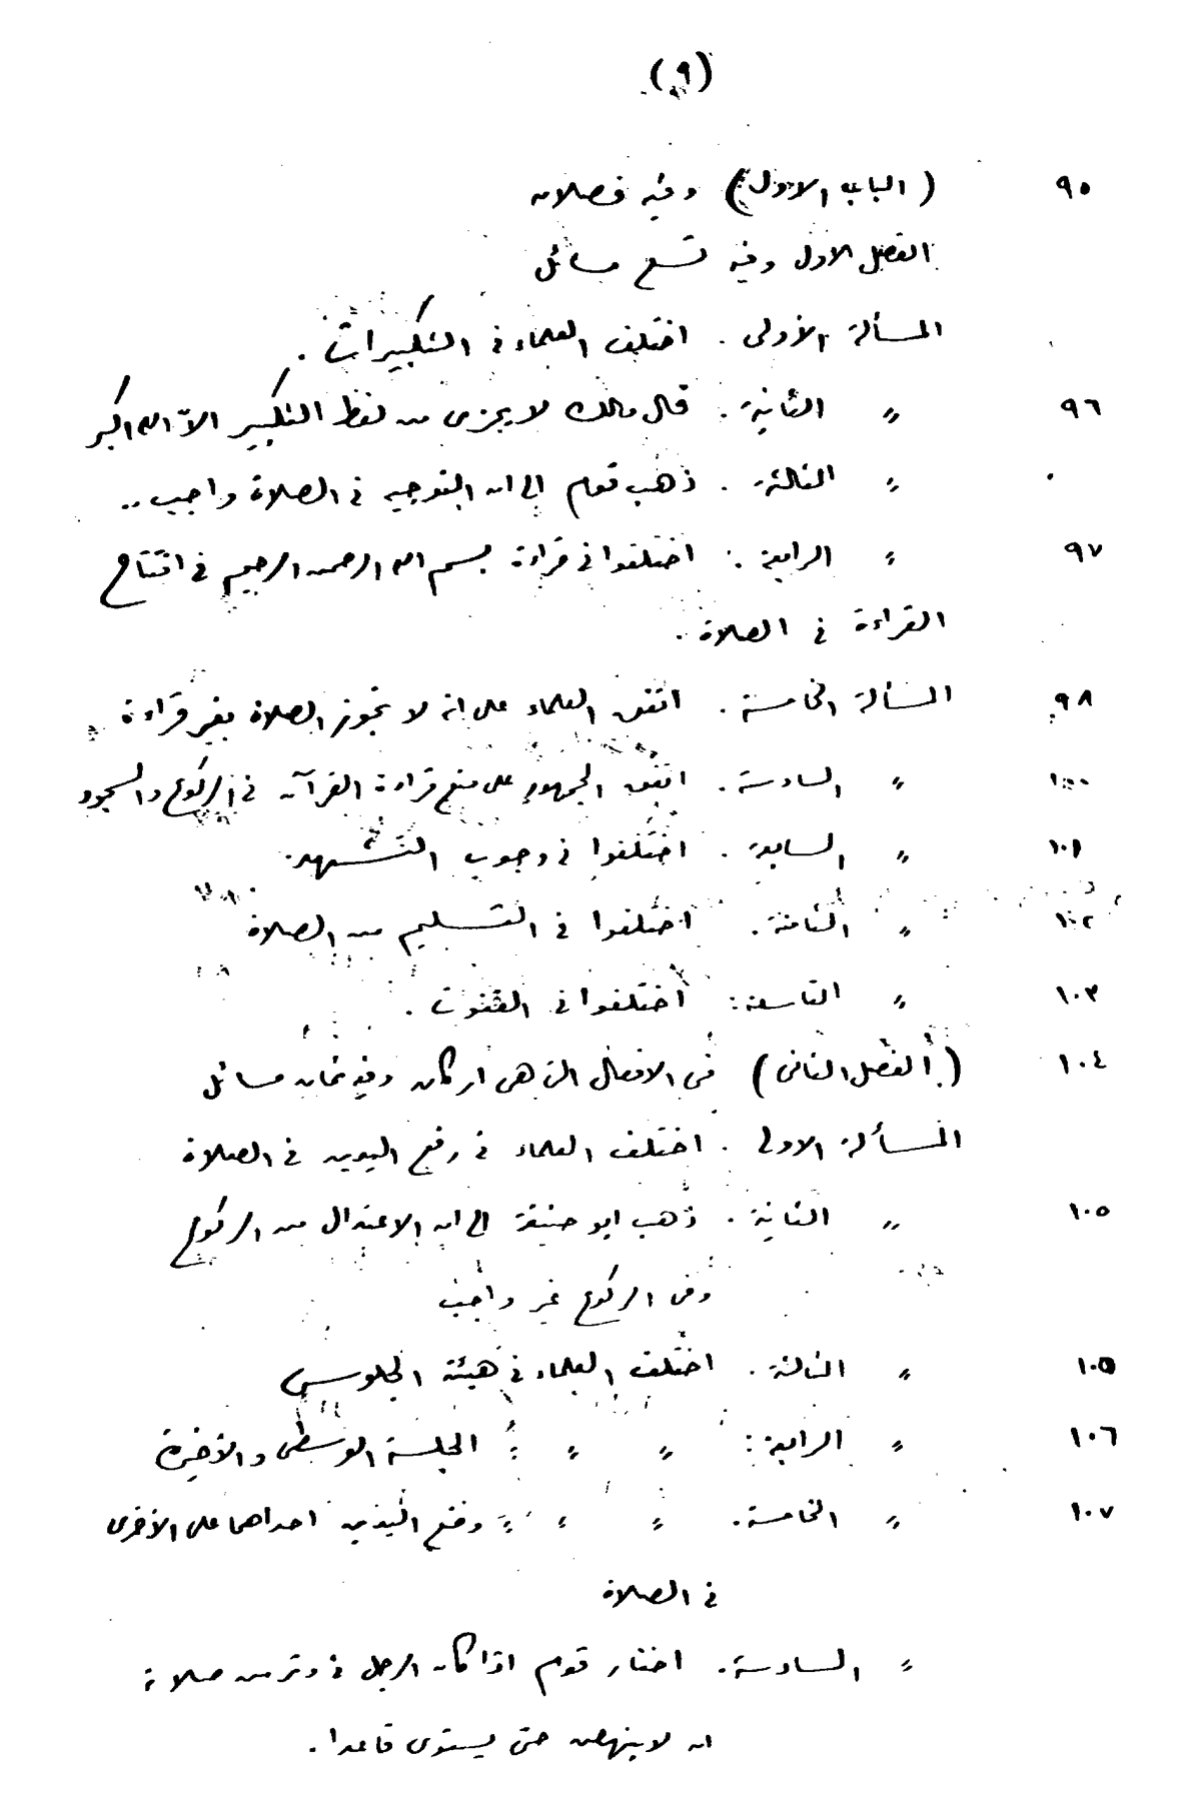 (٩)
٩٥ (الباب الاول) وفيه فصلان
الفصل الاول وفيه تسع مسائل
المسألة الأولى . اختلف العلماء فى التكبيرات .
٩٦ " الثانية . قال مالك لا يجزى من لفظ التكبير الاّ الله اكبر
" الثالثة . ذهب قوم الى ان التوجيه فى الصلاة واجب ..
٩٧ " الرابعة : اختلفوا فى قراءة بسم الله الرحمن الرحيم فى افتتاح
القراءة فى الصلاة .
٩٨ المسألة الخامسة . اتفق العلماء على انه لا تجوز الصلاة بغير قراءة
١٠٠ " السادسة . اتفق الجمهور على منع قراءة القرآن فى الركوع والسجود
١٠١ " السابعة . اختلفوا فى وجوب التشهد .
١٠٢ " الثامنة . اختلفوا فى التسليم من الصلاة
١٠٣ " التاسعة : اختلفوا فى القنوت .
١٠٤ (الفصل الثانى) فى الافعال التى هى اركان وفيه ثمان مسائل
المسألة الاولى . اختلف العلماء فى رفع اليدين فى الصلاة
١٠٥ " الثانية . ذهب ابو حنيفة الى ان الاعتدال من الركوع
وفى الركوع غير واجب
١٠٥ " الثالثة . اختلف العلماء فى هيئة الجلوس
١٠٦ " الرابعة : " " : الجلسة الوسطى والأخيرة
١٠٧ " الخامسة . " " " وضع اليدين احداهما على الأخرى
فى الصلاة
" السادسة . اختار قوم اذا كان الرجل فى وتر من صلاته
ان لا ينهض حتى يستوى قاعدا .